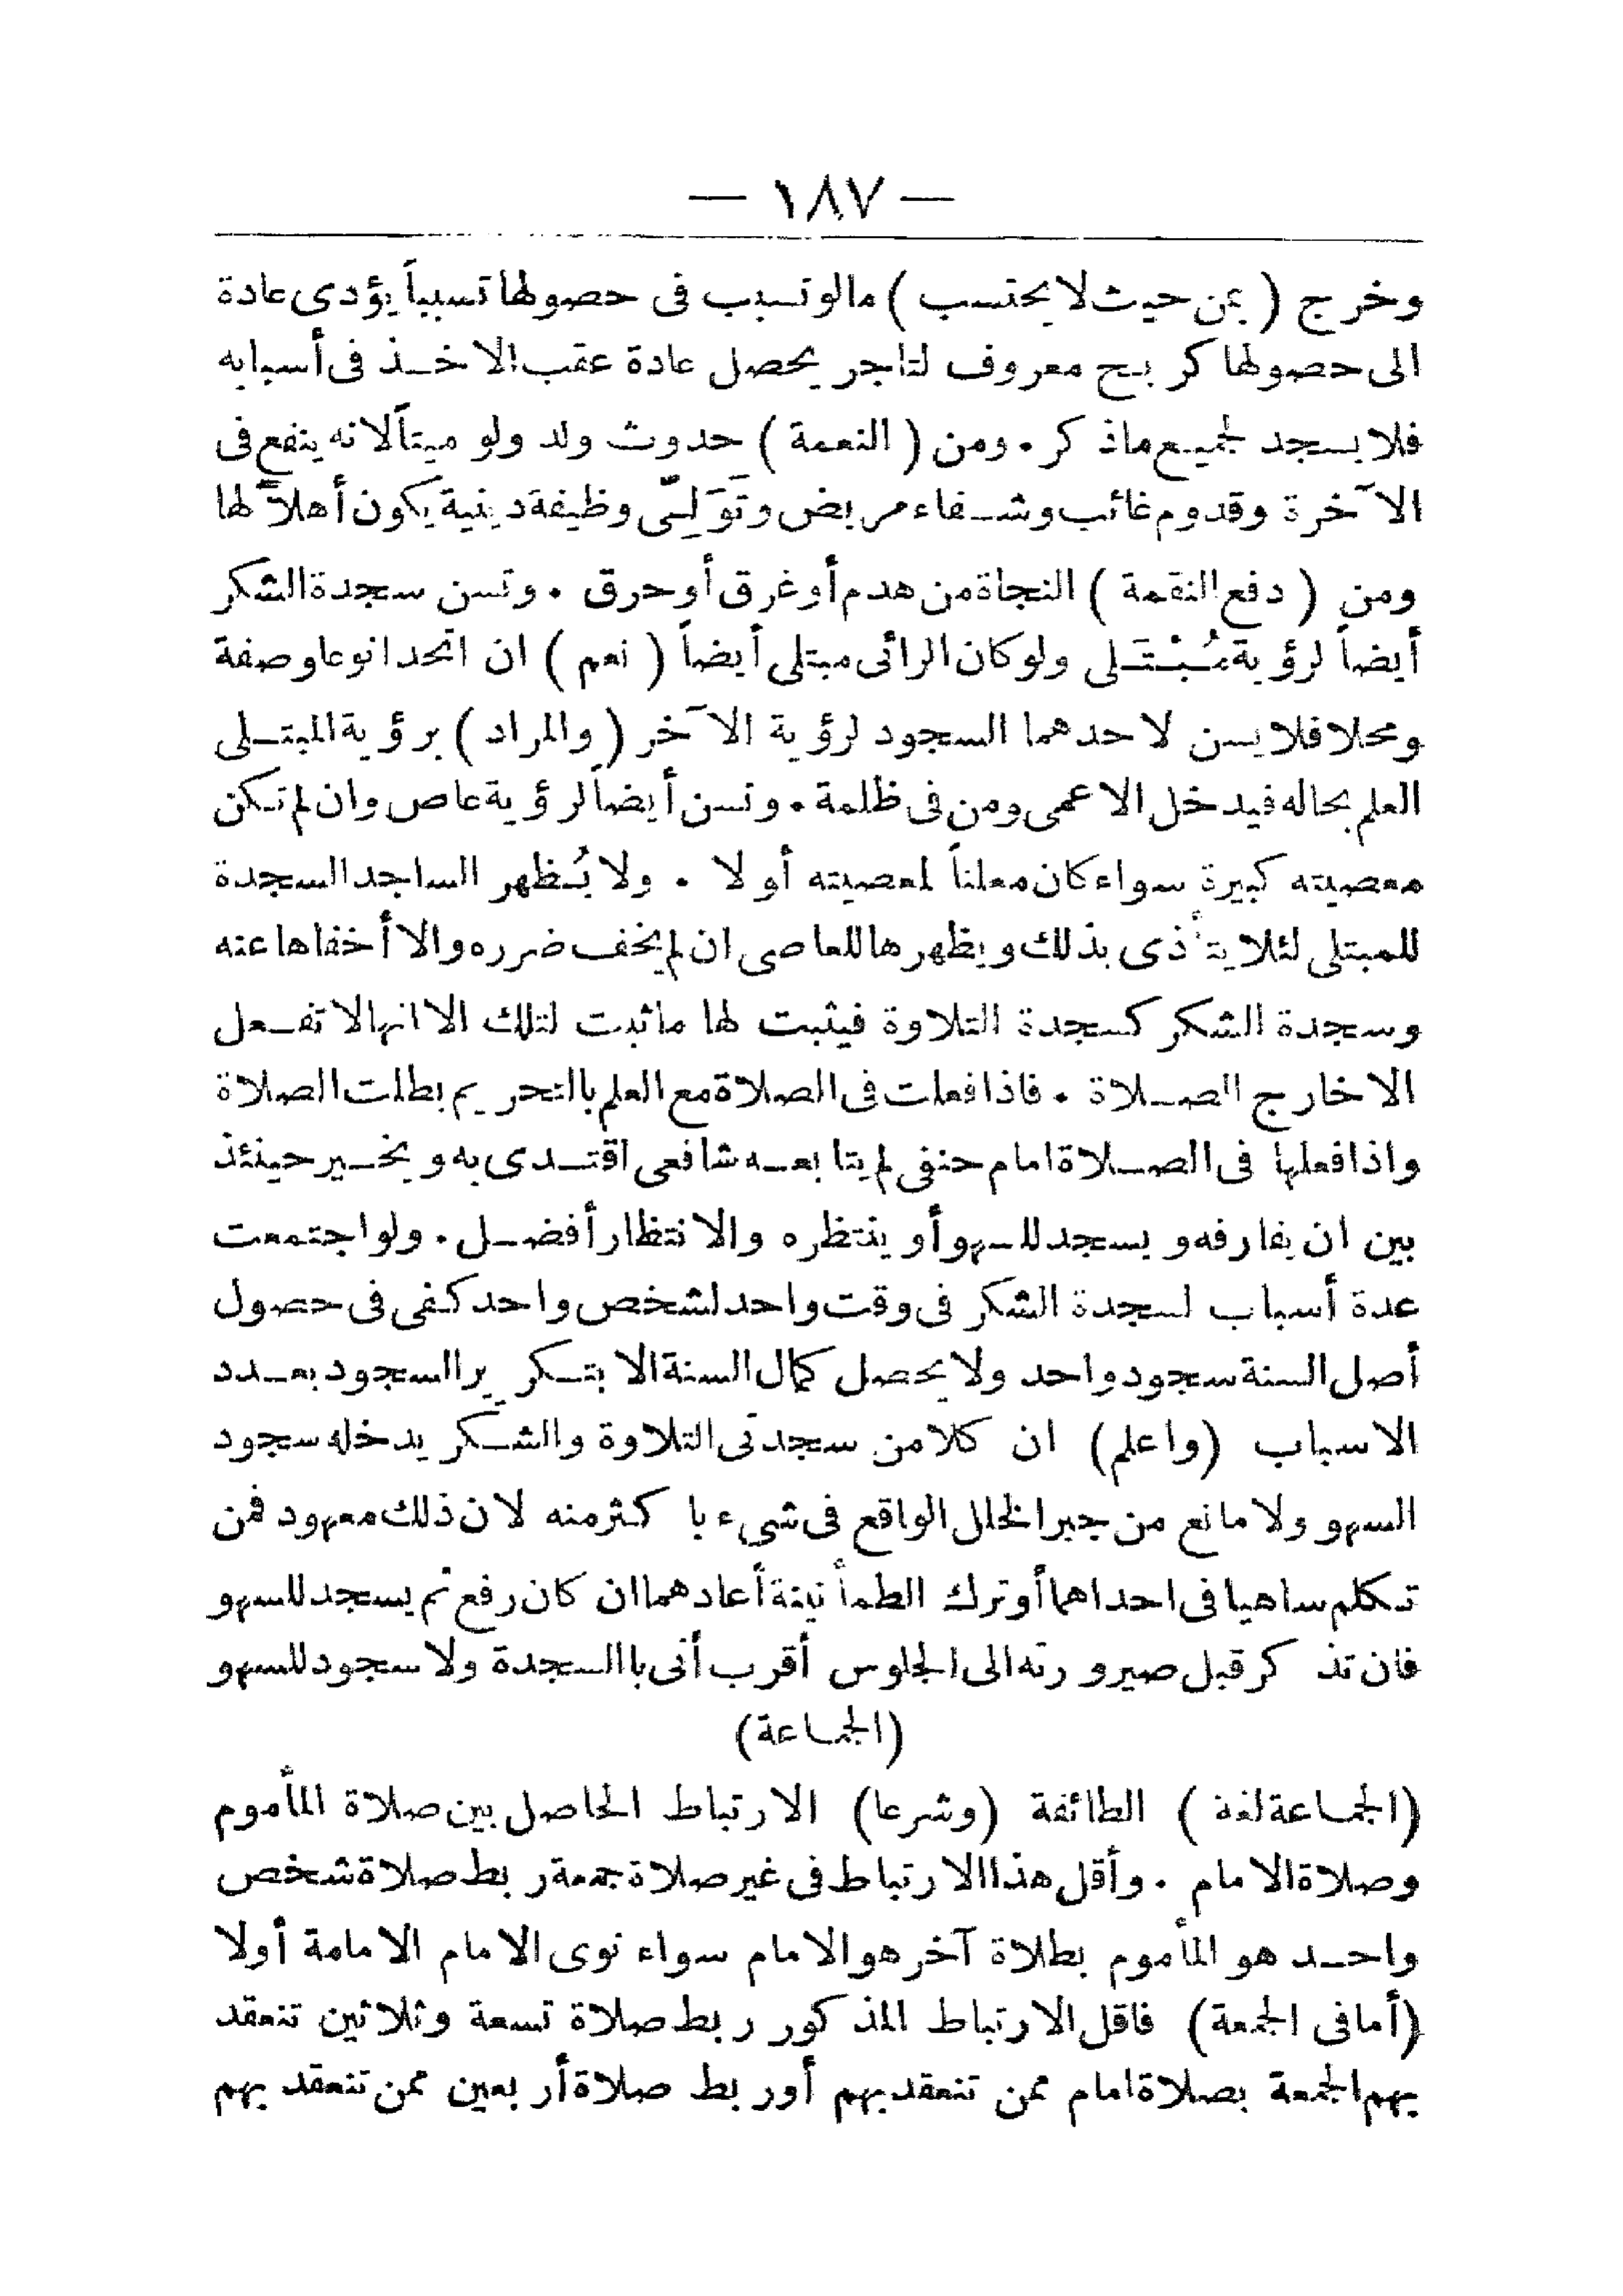 — ١٨٧ —
وخرج ( بمن حيث لا يحتسب ) مالو تسبب فى حصولها تسبباً يؤدى عادة
الى حصولها كربح معروف لتاجر يحصل عادة عقب الاخذ فى أسبابه
فلا يسجد لجميع ماذكر . ومن ( النعمة ) حدوث ولد ولو ميتاً لانه ينفع فى
الآخرة وقدوم غائب وشفاء مريض وتَوَلِّى وظيفة دينية يكون أهلاً لها
ومن ( دفع النقمة ) النجاة من هدم أو غرق أو حرق . وتسن سجدة الشكر
أيضاً لرؤية مُبْتَلى ولو كان الرائى مبتلى أيضاً ( نعم ) ان اتحدا نوعا وصفة
ومحلا فلا يسن لاحدهما السجود لرؤية الآخر ( والمراد ) برؤية المبتلى
العلم بحاله فيدخل الاعمى ومن فى ظلمة . وتسن أيضاً لرؤية عاص وان لم تكن
معصيته كبيرة سواء كان معلناً لمعصيته أولا . ولا يُظهر الساجد السجدة
للمبتلى لئلا يتأذى بذلك ويظهرها للعاصى ان لم يخف ضرره والا أخفاها عنه
وسجدة الشكر كسجدة التلاوة فيثبت لها ماثبت لتلك الا انها لا تفعل
الا خارج الصلاة . فاذا فعلت فى الصلاة مع العلم بالتحريم بطلت الصلاة
واذا فعلها فى الصلاة امام حنفى لم يتابعه شافعى اقتدى به ويخير حينئذ
بين ان يفارقه ويسجد للسهو أو ينتظره والانتظار أفضل . ولو اجتمعت
عدة أسباب لسجدة الشكر فى وقت واحد لشخص واحد كفى فى حصول
أصل السنة سجود واحد ولا يحصل كمال السنة الا بتكرير السجود بعدد
الاسباب (واعلم) ان كلا من سجدتى التلاوة والشكر يدخله سجود
السهو ولا مانع من جبر الخلل الواقع فى شىء باكثر منه لان ذلك معهود فمن
تكلم ساهيا فى احداهما أو ترك الطمأنينة أعادهما ان كان رفع ثم يسجد للسهو
فان تذكر قبل صيرورته الى الجلوس أقرب أتى باالسجدة ولا سجود للسهو
(الجماعة)
(الجماعة لغة ) الطائفة (وشرعا) الارتباط الحاصل بين صلاة المأموم
وصلاة الامام . وأقل هذا الارتباط فى غير صلاة جمعة ربط صلاة شخص
واحد هو المأموم بطلاة آخر هو الامام سواء نوى الامام الامامة أولا
(أما فى الجمعة) فاقل الارتباط المذكور ربط صلاة تسعة وثلاثين تنعقد
بهم الجمعة بصلاة امام ممن تنعقد بهم أو ربط صلاة أربعين ممن تنعقد بهم